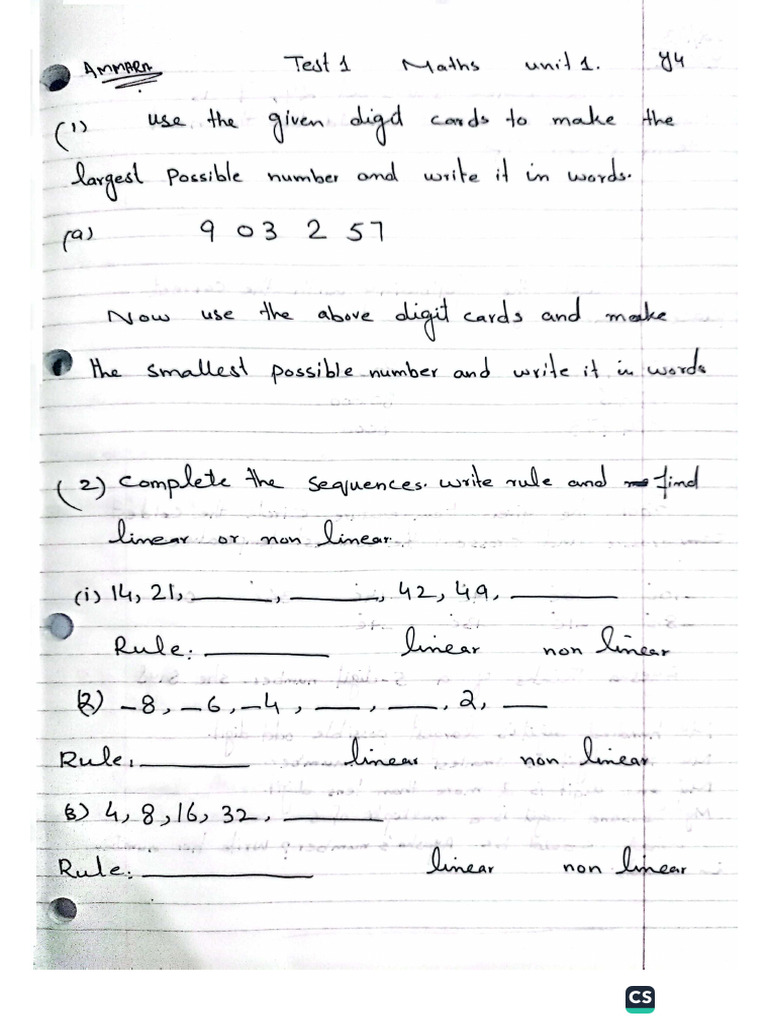 AMMARA Test 1 Maths unit 1. Y4
(1) use the given digit cards to make the
largest possible number and write it in words.
(a) 9 0 3 2 5 7
Now use the above digit cards and make
the smallest possible number and write it in words
(2) complete the sequences. write rule and find
linear or non linear.
(i) 14, 21, ______, ______, 42, 49, ______
Rule: ______ linear non linear
(2) -8, -6, -4, ___, ___, 2, ___
Rule: ______ linear non linear
(3) 4, 8, 16, 32, ______
Rule: ______ linear non linear
CS